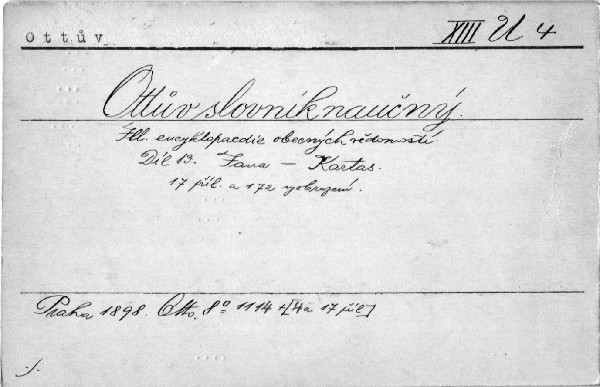 Ottův XIII U 4
Ottův slovník naučný.
Ill. encyklopaedie obecných vědomostí
Díl 13. Jana — Kartas.
17 příl. a 172 vyobrazení.
Praha 1898. Otto. 8º 1114 + [4 a 17 příl]